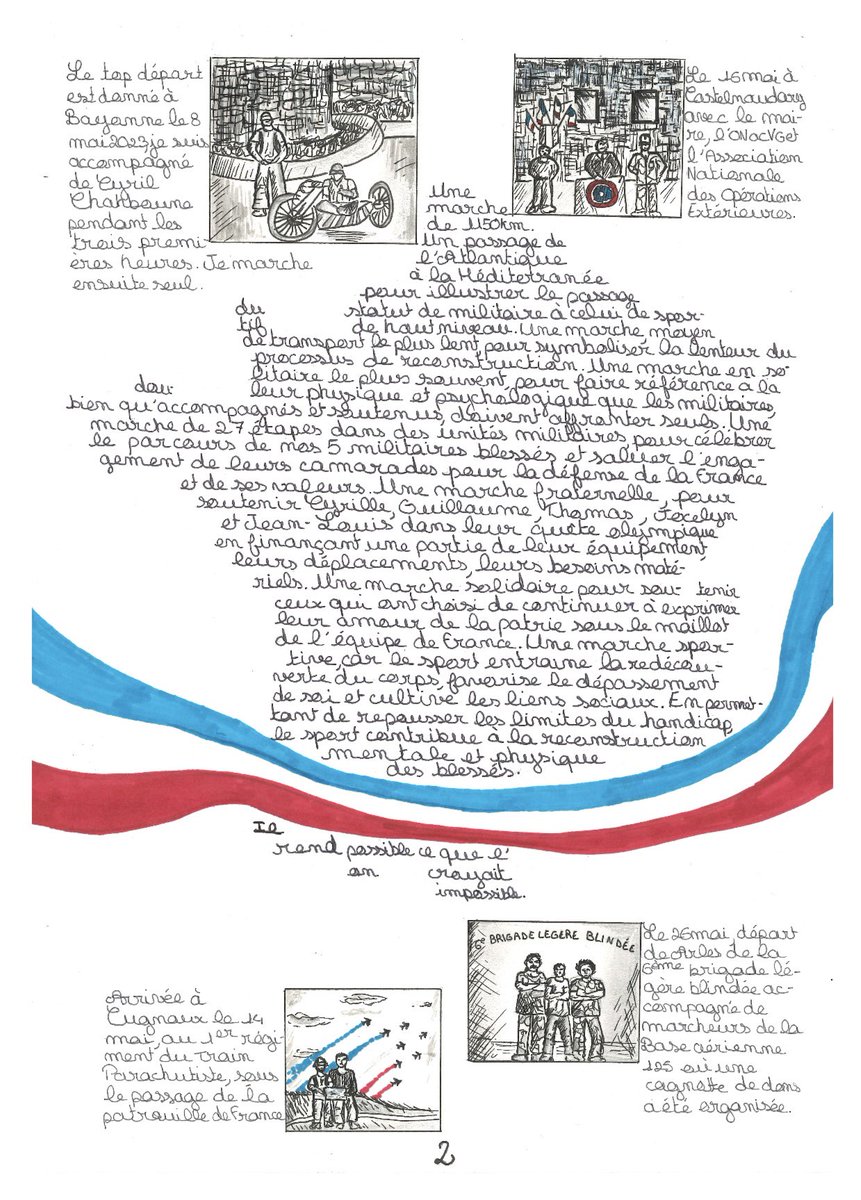 Le top départ
est donné à
Bayonne le 8
mai 2023 je suis
accompagné
de Cyril
Chahboune
pendant les
trois premi-
ères heures. Je marche
ensuite seul.
Le 16 mai à
Castelnaudary
avec le mai-
re, l'ONacVG et
l'Association
Nationale
des Opérations
Extérieures.
Une
marche
de 1150km.
Un passage de
l'Atlantique
à la Méditerranée
pour illustrer le passage
du statut de militaire à celui de spor-
tif de haut niveau. Une marche, moyen
de transport le plus lent, pour symboliser la lenteur du
processus de reconstruction. Une marche en so-
litaire le plus souvent, pour faire référence à la
dou- leur physique et psychologique que les militaires,
bien qu'accompagnés et soutenus, doivent affronter seuls. Une
marche de 27 étapes dans des unités militaires pour célébrer
le parcours de nos 5 militaires blessés et saluer l'enga-
gement de leurs camarades pour la défense de la France
et de ses valeurs. Une marche fraternelle, pour
soutenir Cyrille, Guillaume, Thomas, Jocelyn
et Jean-Louis dans leur quête olympique
en finançant une partie de leur équipement,
leurs déplacements, leurs besoins maté-
riels. Une marche solidaire pour sou- tenir
ceux qui ont choisi de continuer à exprimer
leur amour de la patrie sous le maillot
de l'équipe de France. Une marche spor-
tive, car le sport entraine la redécou-
verte du corps, favorise le dépassement
de soi et cultive les liens sociaux. En permet-
tant de repousser les limites du handicap,
le sport contribue à la reconstruction
mentale et physique
des blessés.
Il
rend possible ce que l'
on croyait
impossible.
6e BRIGADE LEGERE BLINDÉE
Le 26 mai, départ
de Arles de la
6ème brigade lé-
gère blindée ac-
compagné de
marcheurs de la
Base aérienne
125 où une
cagnotte de dons
a été organisée.
Arrivée à
Cugnaux le 14
mai, au 1er régi-
ment du train
Parachutiste, sous
le passage de la
patrouille de France
2